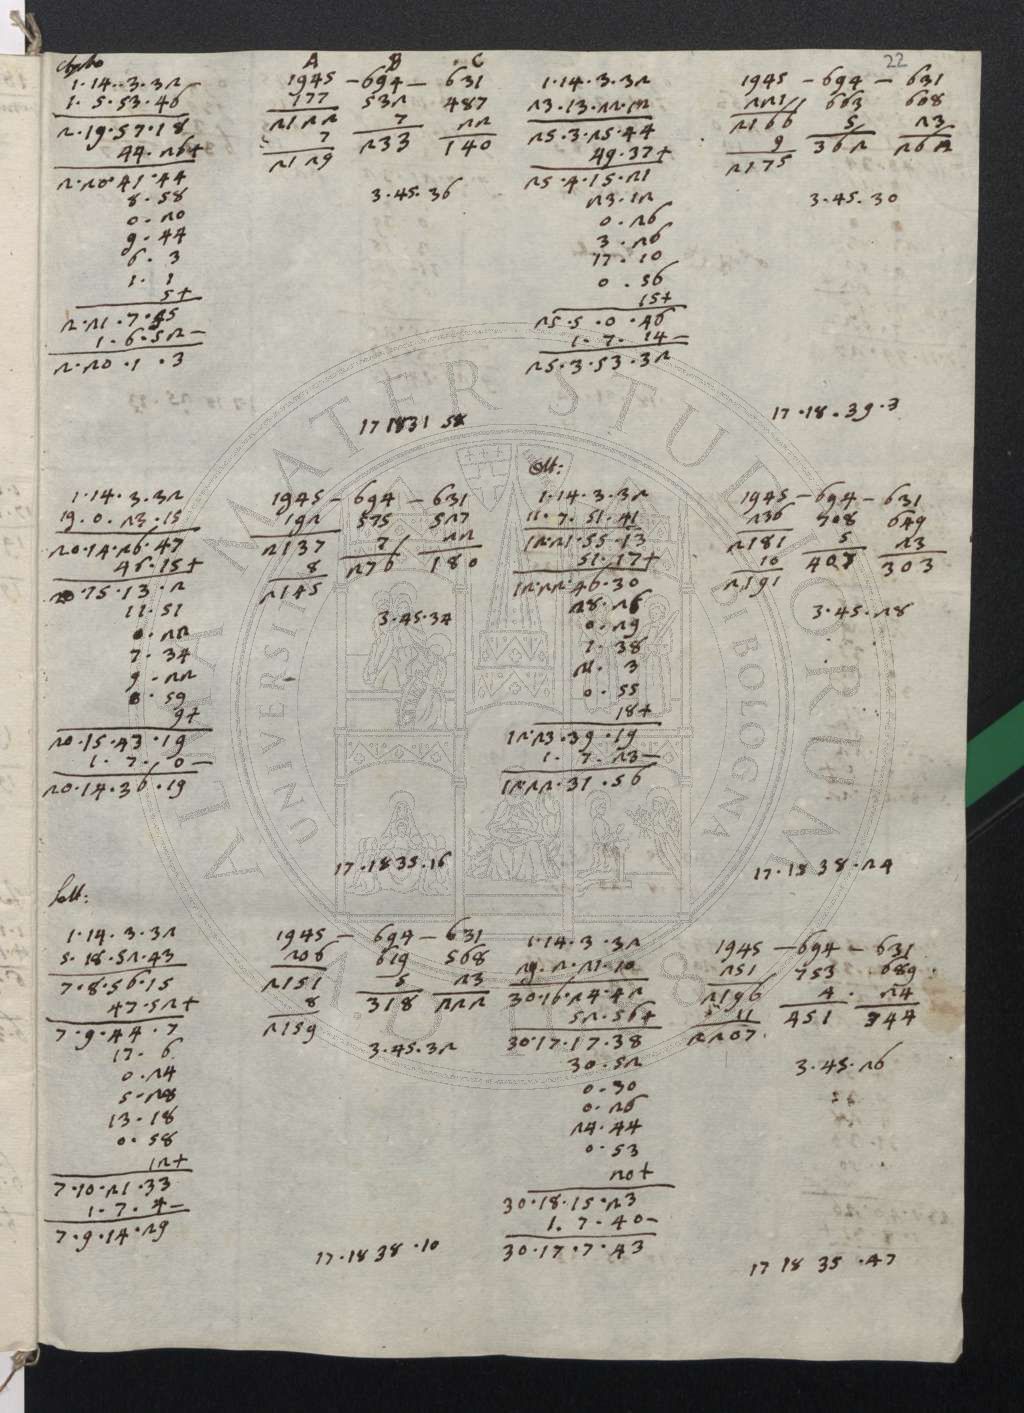 22
1.14.3.32
1.5.53.46
2.19.57.18
44.26+
2.20.41.44
8.58
0.20
9.44
6.3
1.1
5+
2.21.7.45
1.6.52-
2.20.1.3
A B C
1945 - 694 - 631
177 532 487
2122 7 22
7 233 140
2129
3.45.36
17 1831 58
1.14.3.32
23.13.22.12
25.3.25.44
49.37+
25.4.15.21
23.12
0.26
3.26
17.10
0.56
15+
25.5.0.46
1.7.14-
25.3.53.32
1945 - 694 - 631
221 663 608
2166 5 23
9 362 262
2175
3.45.30
17.18.39.3
1.14.3.32
19.0.23.15
20.14.26.47
46.15+
20.15.13.2
11.51
0.22
7.34
9.22
0.59
9+
20.15.43.19
1.7.0-
20.14.36.19
1945 - 694 - 631
192 575 527
2137 7 22
8 276 180
2145
3.45.34
17.1835.16
1.14.3.32
11.7.51.41
12.21.55.13
51.17+
12.22.46.30
28.26
0.29
1.38
21.3
0.55
18+
12.23.39.19
1.7.23-
12.22.31.56
1945 - 694 - 631
236 708 649
2181 5 23
10 407 303
2191
3.45.28
17.1838.24
1.14.3.32
5.18.52.43
7.8.56.15
47.52+
7.9.44.7
17.6
0.24
5.28
13.18
0.58
12+
7.10.21.33
1.7.4-
7.9.14.29
1945 - 694 - 631
206 619 568
2151 5 23
8 318 222
2159
3.45.32
17.1838.10
1.14.3.32
29.2.21.10
30.16.24.42
52.56+
30.17.17.38
30.52
0.30
0.26
24.44
0.53
20+
30.18.15.23
1.7.40-
30.17.7.43
1945 - 694 - 631
251 753 689
2196 4 24
11 451 344
2207
3.45.26
17 18 35.47
ALMA MATER STUDIORUM
UNIVERSITÀ DI BOLOGNA
A.D. 1088